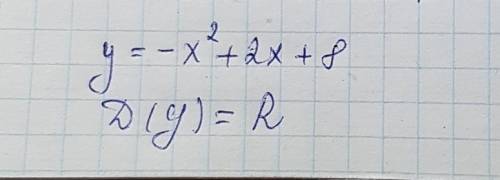 y = -x² + 2x + 8
D(y) = R